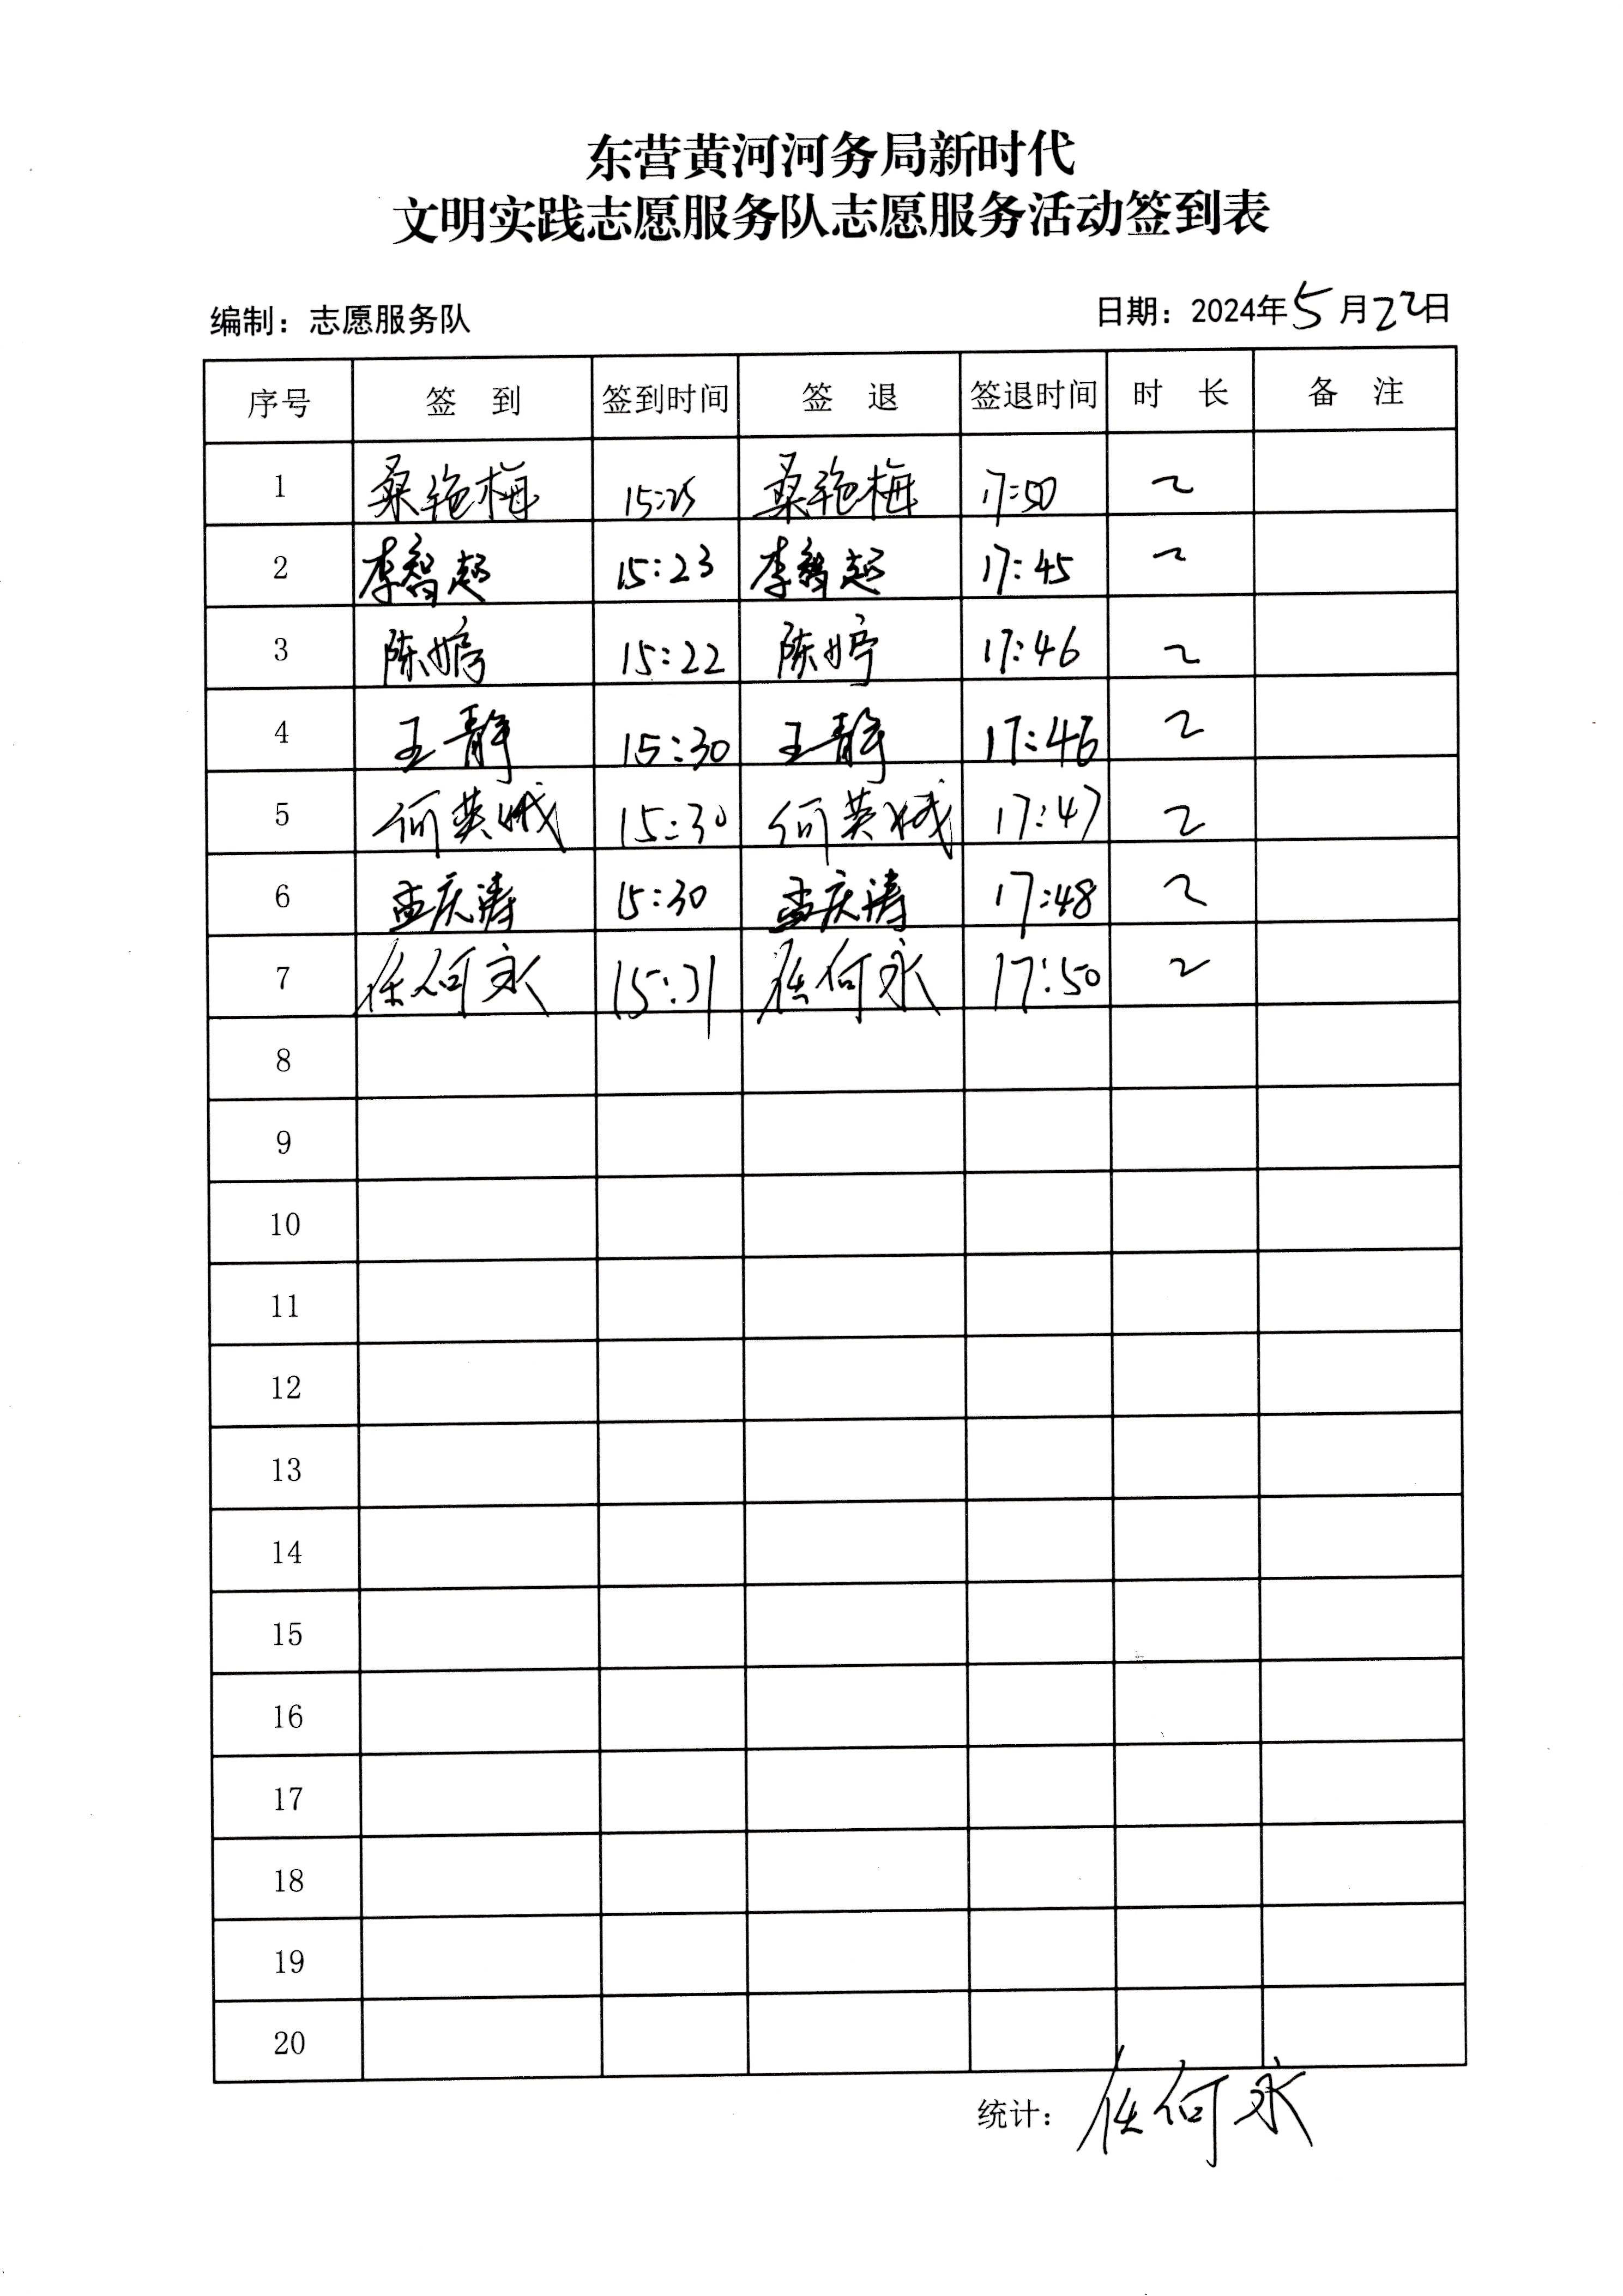 东营黄河河务局新时代
文明实践志愿服务队志愿服务活动签到表
编制：志愿服务队 日期：2024年5月22日
序号 签到 签到时间 签退 签退时间 时长 备注
1 桑艳梅 15:25 桑艳梅 17:50 2
2 李智超 15:23 李智超 17:45 2
3 陈婷 15:22 陈婷 17:46 2
4 王静 15:30 王静 17:46 2
5 何英 15:30 何英 17:47 2
6 孟庆涛 15:30 孟庆涛 17:48 2
7 任何永 15:31 任何永 17:50 2
8
9
10
11
12
13
14
15
16
17
18
19
20
统计：任何永